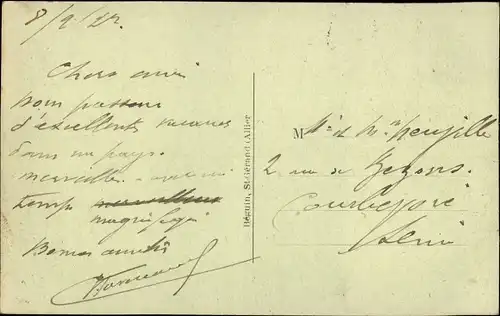 8/9/27
Chers amis
nous passons
d'excellents vacances
dans un pays
merveilleux
temps
magnifique
Bonnes amitiés
Béguin, St-Gérand (Allier)
M
Mr et Mme
2, rue de Bezons
Courbevoie
Seine